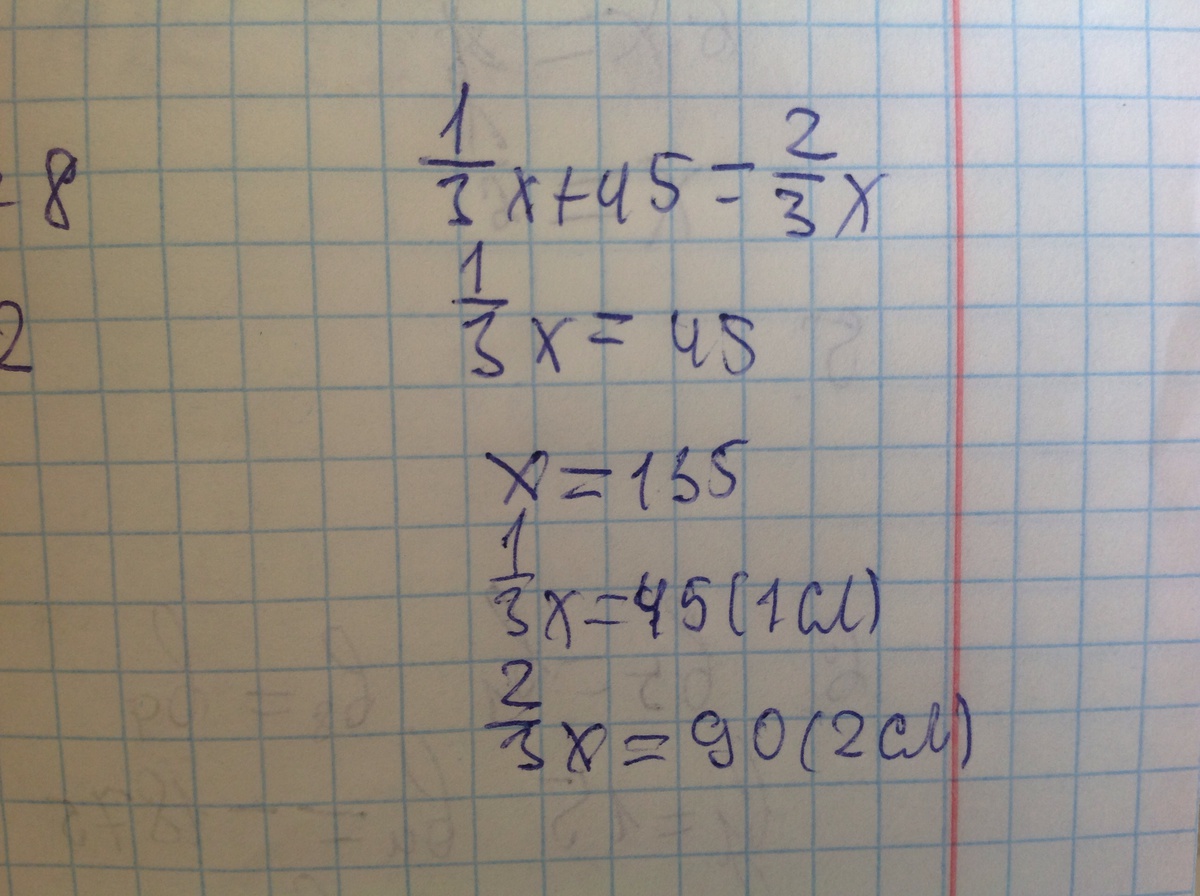 - 8
1/3 x + 45 = 2/3 x
2
1/3 x = 45
x = 135
1/3 x = 45 (1 сл)
2/3 x = 90 (2 сл)